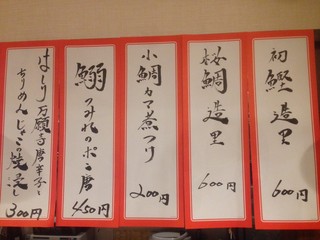 初鰹造里
600円
桜鯛造里
600円
小鯛カマ煮つけ
200円
鰯つみれのポン唐
450円
はしり万願寺唐辛子と
ちりめんじゃこの焼浸し
300円